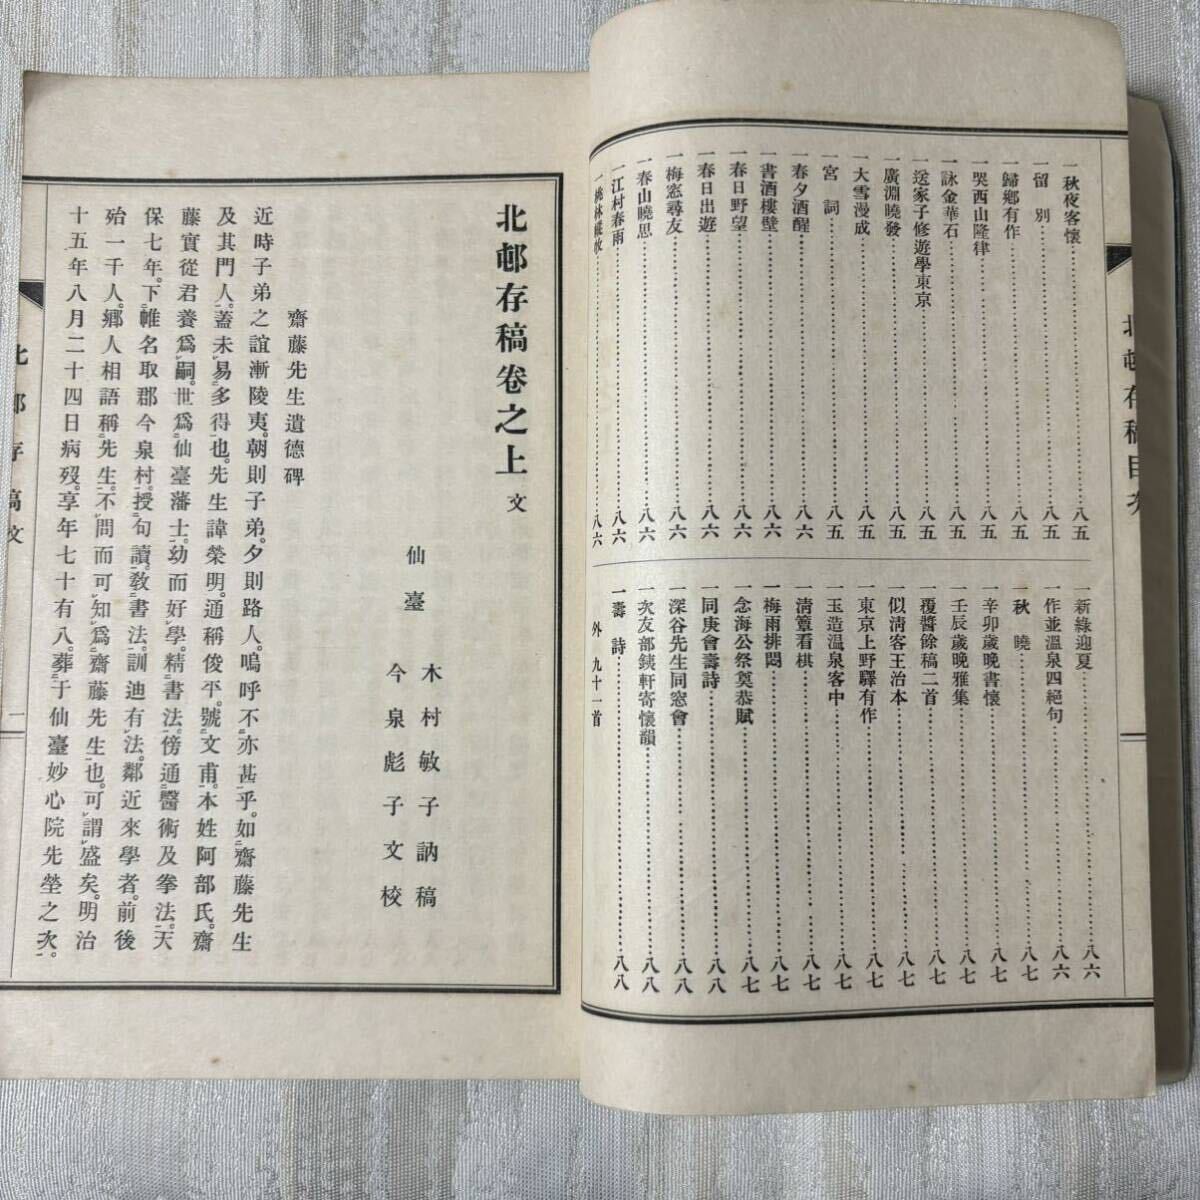 一秋夜客懷……八五
一留別……八五
一歸鄉有作……八五
一哭西山隆律……八五
一詠金華石……八五
一送家子修遊學東京……八五
一廣淵曉發……八五
一大雪漫成……八五
一宮詞……八五
一春夕酒醒……八六
一書酒樓壁……八六
一春日野望……八六
一春日出遊……八六
一梅窓尋友……八六
一春山曉思……八六
一江村春雨……八六
一桃林……八六
一新綠迎夏……八六
一作並溫泉四絕句……八六
一秋曉……八七
一辛卯歲晚書懷……八七
一壬辰歲晚雅集……八七
一覆醬餘稿二首……八七
一似淸客王治本……八七
一東京上野驛有作……八七
一玉造溫泉客中……八七
一淸簟看棋……八七
一梅雨排悶……八七
一念海公祭奠恭賦……八七
一同庚會壽詩……八八
一深谷先生同窓會……八八
一次友部鐵軒寄懷韻……八八
一壽詩……八八
外九十一首
北邨存稿目次
北邨存稿卷之上 文
仙臺 木村敏子訥稿
今泉彪子文校
齋藤先生遺德碑
近時子弟之誼漸陵夷。朝則子弟。夕則路人。嗚呼不亦甚乎。如齋藤先生
及其門人。蓋未易多得也。先生諱榮明。通稱俊平。號文甫。本姓阿部氏。齋
藤實從君養爲嗣。世爲仙臺藩士。幼而好學。精書法。傍通醫術及拳法。天
保七年。下帷名取郡今泉村。授句讀。敎書法。訓迪有法。鄰近來學者。前後
殆一千人。鄉人相語稱先生。不問而可知爲齋藤先生也。可謂盛矣。明治
十五年八月二十四日病歿。享年七十有八。葬于仙臺妙心院先塋之次。
北邨存稿文